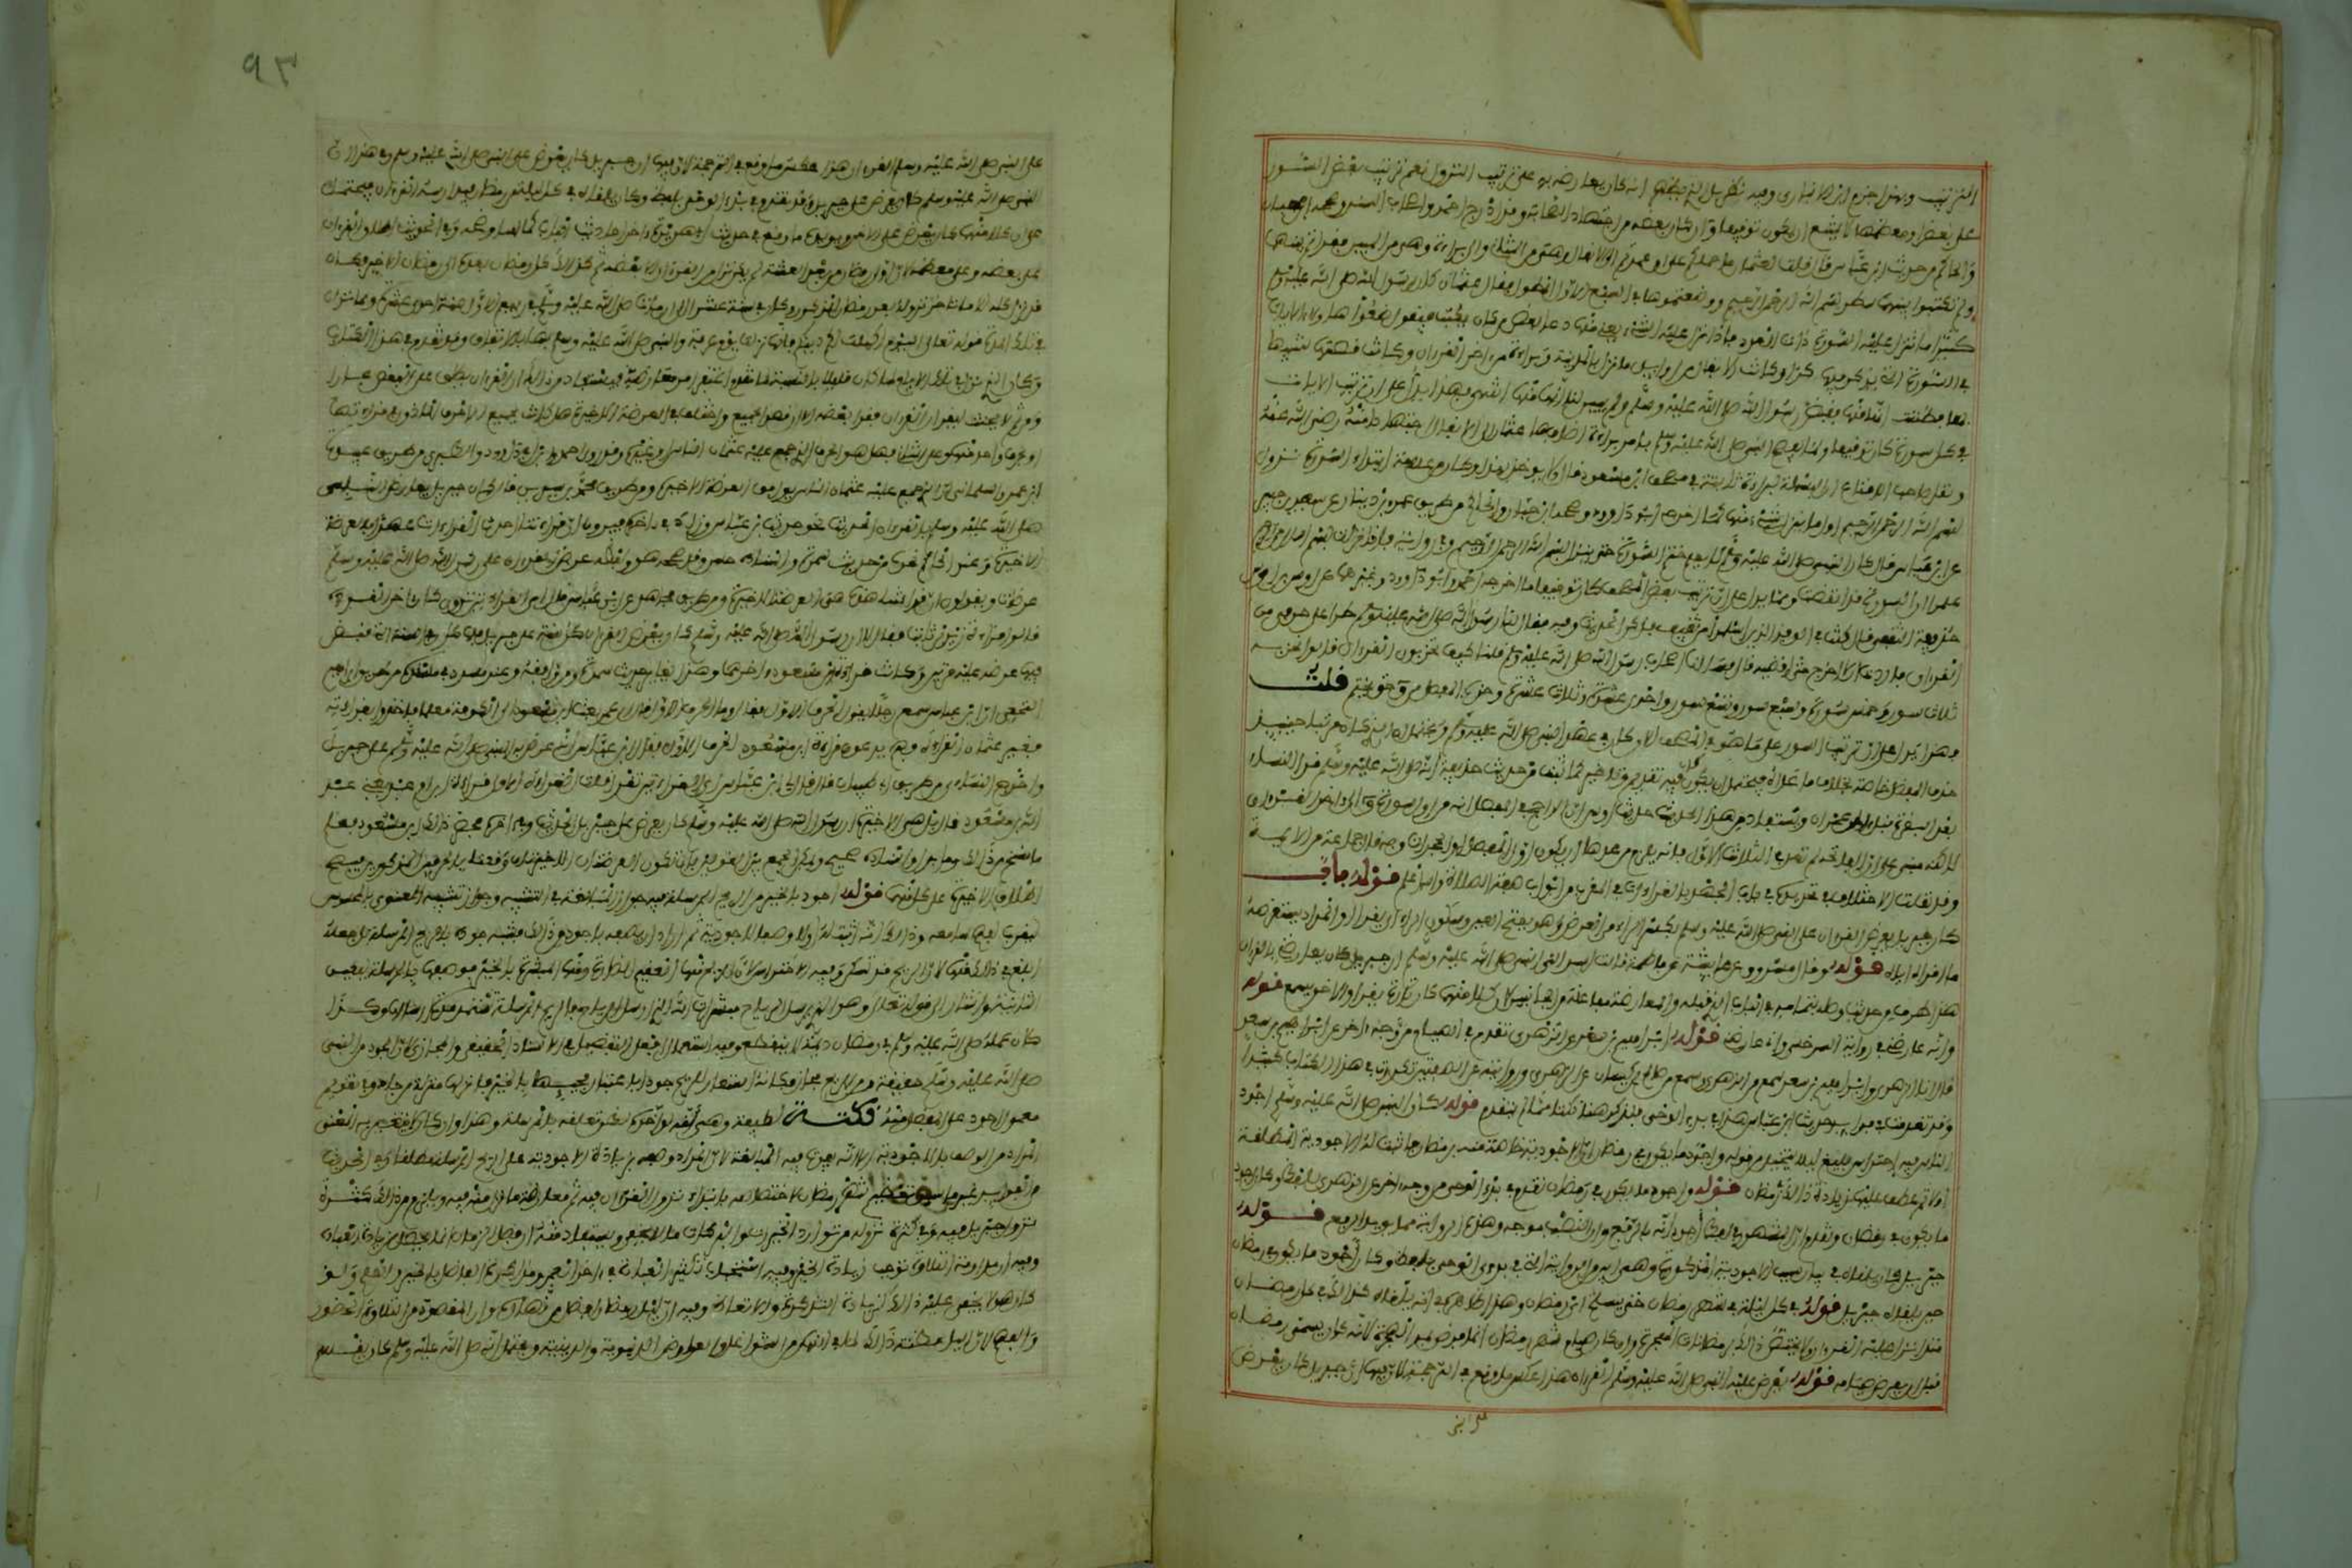 الترتيب وبهذا جزم ابن الانباري وفيه نظر بل الذي يظهر انه كان يعارضه به على ترتيب النزول نعم ترتيب بعض السور
على بعض او معظمها لا يمتنع ان يكون توقيفا وان كان بعضه من اجتهاد الصحابة وقد اخرج احمد واصحاب السنن وصححه ابن حبان
والحاكم من حديث ابن عباس قال قلت لعثمان ما حملكم على ان عمدتم الى الانفال وهي من المثاني والى براءة وهي من المبين فقرنتم بينهما
ولم تكتبوا بينهما سطر بسم الله الرحمن الرحيم ووضعتموها في السبع الطوال فقال عثمان كان رسول الله صلى الله عليه وسلم
كثيرا ما ينزل عليه السورة ذات العدد فاذا نزل عليه الشيء يعني منها دعا بعض من كان يكتب فيقول ضعوا هاولاء الايات
في السورة التي يذكر فيها كذا وكانت الانفال من اوايل ما نزل بالمدينة وبراءة من اخر القران وكانت قصتها شبيهة
بها فظننت انها منها فقبض رسول الله صلى الله عليه وسلم ولم يبين لنا انها منها انتهى فهذا يدل على ان ترتيب الايات
في كل سورة كان توقيفا ولما لم يفصح النبي صلى الله عليه وسلم بامر براءة اضافها عثمان الى الانفال اجتهادا منه رضي الله عنه
ونقل صاحب الاقناع ان البسملة لبراءة ثابتة في مصحف ابن مسعود قال ولا يوخذ بهذا وكان من علامة ابتداء السورة نزول
بسم الله الرحمن الرحيم اول ما ينزل شيء منها كما اخرجه ابو داوود وصححه ابن حبان والحاكم من طريق عمرو بن دينار عن سعيد بن جبير
عن ابن عباس قال كان النبي صلى الله عليه وسلم لا يعلم ختم السورة حتى ينزل بسم الله الرحمن الرحيم وفي رواية فاذا نزلت بسم الله الرحمن الرحيم
علموا ان السورة قد انقضت ومما يدل على ان ترتيب بعض المصحف كان توقيفا ما اخرجه احمد وابو داوود وغيرهما عن اوس بن ابي اوس
حذيفة الثقفي قال كنت في الوفد الذين اسلموا من ثقيف فذكر الحديث وفيه فقال لنا رسول الله صلى الله عليه وسلم طرا علي حزبي من
القران فاردت ان لا اخرج حتى اقضيه قال فسالنا اصحاب رسول الله صلى الله عليه وسلم قلنا كيف تحزبون القران قالوا نحزبه
ثلاث سور وخمس سور وسبع سور وتسع سور واحدى عشرة وثلاث عشرة وحزب المفصل من ق حتى تختم قلت
فهذا يدل على ان ترتيب السور على ما هو في المصحف الان كان في عهد النبي صلى الله عليه وسلم ويحتمل ان الذي كان مرتبا حينيذ
حزب المفصل خاصة بخلاف ما عداه فيحتمل ان يكون كان فيه تقديم وتاخير كما ثبت من حديث حذيفة انه صلى الله عليه وسلم قرا النساء
بعد البقرة قبل ال عمران ويستفاد من هذا الحديث حديث اوس ان الراجح في المفصل انه من اول سورة ق الى اخر القران
لكنه مبني على ان الفاتحة لم تعد في الثلاث الاول فانه يلزم من عدها ان يكون اول المفصل من الحجرات وبه جزم جماعة من الايمة
وقد نقلت الاختلاف في تحديده في باب الجهر بالقراءة في المغرب من ابواب صفة الصلاة والله اعلم قوله باب
كان جبريل يعرض القران على النبي صلى الله عليه وسلم بكسر الراء من العرض وهو بفتح العين وسكون الراء اي يقرا والمراد يستعرضه
ما اقراه اياه قوله وقال مسروق عن عايشة عن فاطمة قالت اسر الي النبي صلى الله عليه وسلم ان جبريل كان يعارضني بالقران
هذا طرف من حديث وصله بتمامه في
وانه عارضني في رواية السرخسي واني عارضني قوله ابراهيم بن سعد عن الزهري تقدم في الصيام من وجه اخر عن ابراهيم بن سعد
قال انبانا الزهري وابراهيم بن سعد سمع من الزهري وسمع من صالح بن كيسان عن الزهري وروايته على الصفتين تكررت في هذا الكتاب كثيرا
وقد تقدمت فوايد حديث ابن عباس هذا في بدء الوحي فنذكر هنا نكتا مما لم يتقدم قوله كان النبي صلى الله عليه وسلم اجود
الناس فيه احتراس بليغ ليلا يتخيل من قوله واجود ما يكون في رمضان ان الاجودية خاصة منه برمضان فاثبت له الاجودية المطلقة
اولا ثم عطف عليها زيادة ذلك في رمضان قوله واجود ما يكون في رمضان تقدم في بدء الوحي من وجه اخر عن الزهري بلفظ وكان اجود
ما يكون في رمضان وتقدم ان المشهور في ضبط اجود انه بالرفع وان النصب موجه وهذه الرواية مما يويد الرفع قوله
جبريل فلفظه وكان اجود ما يكون في رمضان
حين يلقاه جبريل قوله في كل ليلة في شهر رمضان حتى ينسلخ اي رمضان وهذا ظاهر في انه كان يلقاه كذلك في كل رمضان
منذ انزل عليه القران ولا يختص ذلك برمضانات الهجرة وان كان صيام شهر رمضان انما فرض بعد الهجرة لانه كان يسمى رمضان
قبل ان يفرض صيامه قوله يعرض عليه النبي صلى الله عليه وسلم القران هذا عكس ما وقع في الترجمة لان فيها ان جبريل كان يعرض
٩٣
على النبي صلى الله عليه وسلم القران هذا عكس ما وقع في الترجمة لان فيها ان جبريل كان يعرض على النبي صلى الله عليه وسلم وفي هذا ان
النبي صلى الله عليه وسلم كان يعرض على جبريل وقد تقدم في بدء الوحي بلفظ وكان يلقاه في كل ليلة من رمضان فيدارسه القران فيحتمل
ان كلا منهما كان يعرض على الاخر ويويده ما وقع في حديث ابي هريرة اخر احاديث الباب كما ساوضحه وفي الحديث اطلاق القران
على بعضه وعلى معظمه لان اول رمضان من بعد البعثة لم يكن نزل من القران الا بعضه ثم كذلك كل رمضان بعده الى رمضان الاخير فكان
قد نزل كله الا ما تاخر نزوله بعد رمضان المذكور وكان في سنة عشر الى ان مات صلى الله عليه وسلم في ربيع الاول سنة احدى عشرة ومما نزل
في تلك المدة قوله تعالى اليوم اكملت لكم دينكم فانها نزلت يوم عرفة والنبي صلى الله عليه وسلم بها بالاتفاق وقد تقدم في هذا الكتاب
وكان الذي نزل في تلك الايام لما كان قليلا بالنسبة لما تقدم اغتفر امر معارضته فيستفاد من ذلك ان القران يطلق على البعض مجازا
ومن ثم لا يحنث من حلف ليقران القران فقرا بعضه الا ان قصد الجميع واختلف في العرضة الاخيرة هل كانت بجميع الاحرف الماذون في قراءتها
او بحرف واحد منها وعلى الثاني فهل هو الحرف الذي جمع عليه عثمان الناس او غيره وقد روى احمد وابن ابي داوود والطبري من طريق عبيدة
بن عمرو السلماني ان الذي جمع عليه عثمان الناس يوافق العرضة الاخيرة ومن طريق محمد بن سيرين قال كان جبريل يعارض النبي
صلى الله عليه وسلم بالقران الحديث نحو حديث ابن عباس وزاد في اخره فيرون ان قراءتنا احدث القراءات عهدا بالعرضة
الاخيرة وعند الحاكم نحوه من حديث سمرة واسناده حسن وقد صححه هو ولفظه عرض القران على رسول الله صلى الله عليه وسلم
عرضات ويقولون ان قراءتنا هذه هي العرضة الاخيرة ومن طريق مجاهد عن ابن عباس قال اي القراءتين ترون كان اخر القراءة
قالوا قراءة زيد بن ثابت فقال لا ان رسول الله صلى الله عليه وسلم كان يعرض القران كل سنة على جبريل فلما كان في السنة التي قبض
فيها عرضه عليه مرتين وكانت قراءة ابن مسعود اخرهما وهذا يغاير حديث سمرة ومن وافقه وعند مسدد في مسنده من طريق ابراهيم
النخعي ان ابن عباس سمع رجلا يقول الحرف الاول فقال وما الحرف الاول قال ان عمر بعث ابن مسعود الى الكوفة معلما فاخذوا بقراءته
فغير عثمان القراءة فهم يدعون قراءة ابن مسعود الحرف الاول فقال ابن عباس انه لاخر حرف عرض به النبي صلى الله عليه وسلم على جبريل
واخرج النسائي من طريق ابي ظبيان قال قال لي ابن عباس اي القراءتين تقرا قلت القراءة الاولى قراءة ابن ام عبد يعني عبد
الله بن مسعود قال بل هي الاخيرة ان رسول الله صلى الله عليه وسلم كان يعرض على جبريل الحديث وفي اخره فحضر ذلك ابن مسعود فعلم
ما نسخ من ذلك وما بدل واسناده صحيح ويمكن الجمع بين القولين بان تكون العرضتان الاخيرتان وقعتا بالحرفين المذكورين فيصح
اطلاق الاخيرة على كل منهما قوله اجود بالخير من الريح المرسلة فيه جواز المبالغة في التشبيه وجواز تشبيه المعنوي بالمحسوس
ليقرب لفهم سامعه وذلك انه اثبت له اولا وصف الاجودية ثم اراد ان يصفه بازيد من ذلك فشبه جوده بالريح المرسلة بل جعله
ابلغ في ذلك منها لان الريح قد تسكن وفيه الاحتراس لان الريح منها العقيم الضارة ومنها المبشرة بالخير فوصفها بالمرسلة ليعين
الثانية واشار الى قوله تعالى وهو الذي يرسل الرياح مبشرات الله الذي ارسل الرياح فالريح المرسلة تستمر مدة ارسالها وكذا
كان عمله صلى الله عليه وسلم في رمضان ديمة لا ينقطع وفيه استعمال افعل التفضيل في الاسناد الحقيقي والمجازي لان الجود من النبي
صلى الله عليه وسلم حقيقة ومن الريح مجاز فكانه استعار للريح جودا باعتبار مجييها بالخير فانزلها منزلة من جاد وفي تقديم
معمول اجود على المفضل عليه نكتة لطيفة وهي انه لو اخره لظن تعلقه بالمرسلة وهذا وان كان لا يتغير به المعنى
المراد من الوصف بالاجودية الا انه يفوت فيه المبالغة لان المراد وصفه بزيادة الاجودية على الريح المرسلة مطلقا وفي الحديث
من الفوايد غير ما سبق تعظيم شهر رمضان لاختصاصه بابتداء نزول القران فيه ثم معارضته ما نزل منه فيه ويلزم من ذلك كثرة
نزول جبريل فيه وفي كثرة نزوله من توارد الخيرات والبركات ما لا يحصى ويستفاد منه ان فضل الزمان انما يحصل بزيادة العبادة
وفيه ان مداومة التلاوة توجب زيادة الخير وفيه استحباب تكثير العبادة في اخر العمر ومذاكرة الفاضل بالخير والعلم وان
كان هو لا يخفى عليه ذلك لزيادة التذكرة والاتعاظ وفيه ان ليل رمضان افضل من نهاره وان المقصود من التلاوة الحضور
والفهم لان الليل مظنة ذلك لما في النهار من الشواغل والعوارض الدنيوية والدينية ويحتمل انه صلى الله عليه وسلم كان يقسم